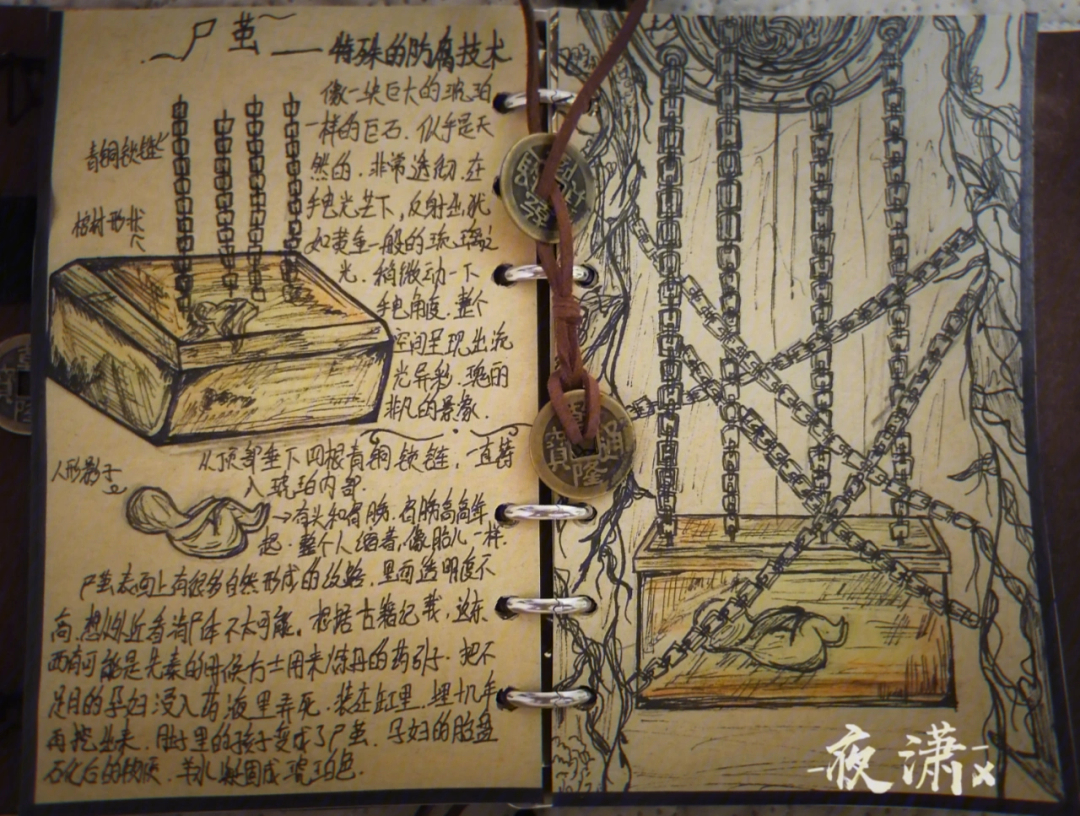 尸茧——特殊的防腐技术
像一块巨大的琥珀
一样的巨石.似乎是天
然的.非常透彻.在
手电光芒下,反射出犹
如黄金一般的琉璃之
光.稍微动一下
手电角度.整个
空间呈现出流
光异彩.瑰丽
非凡的景象.
青铜铁链
棺材形状
从顶部垂下四根青铜铁链,一直替
入琥珀内部.
人形影子
→有头和肩膀.肩膀高高耸
起.整个人缩着,像胎儿一样.
尸茧表面上有很多自然形成的纹路.里面透明度不
高.想从近看清尸体不太可能.根据古籍记载,这东
西有可能是先秦的开侯方士用来炼丹的药引子.把不
足月的孕妇浸入药液里弄死.装在缸里.埋十几年
再挖出来.肚子里的孩子变成了尸茧.孕妇的胎盘
石化后的
羊水凝固成琥珀色.
夜潇x